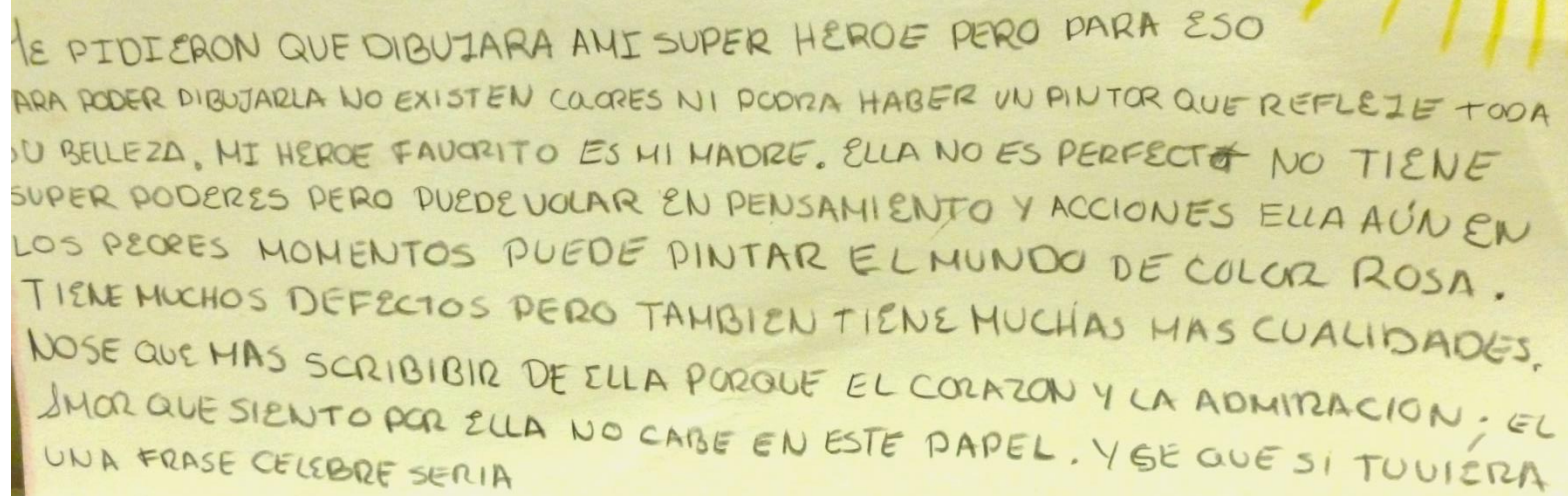 ME PIDIERON QUE DIBUJARA AMI SUPER HEROE PERO PARA ESO
ARA PODER DIBUJARLA NO EXISTEN COLORES NI PODRA HABER UN PINTOR QUE REFLEJE TODA
SU BELLEZA. MI HEROE FAVORITO ES MI MADRE. ELLA NO ES PERFECTA NO TIENE
SUPER PODERES PERO PUEDE VOLAR EN PENSAMIENTO Y ACCIONES ELLA AÚN EN
LOS PEORES MOMENTOS PUEDE PINTAR EL MUNDO DE COLOR ROSA.
TIENE MUCHOS DEFECTOS PERO TAMBIEN TIENE MUCHAS MAS CUALIDADES.
NOSE QUE MAS SCRIBIBIR DE ELLA PORQUE EL CORAZON Y LA ADMIRACION; EL
AMOR QUE SIENTO POR ELLA NO CABE EN ESTE PAPEL. Y SE QUE SI TUVIERA
UNA FRASE CELEBRE SERIA